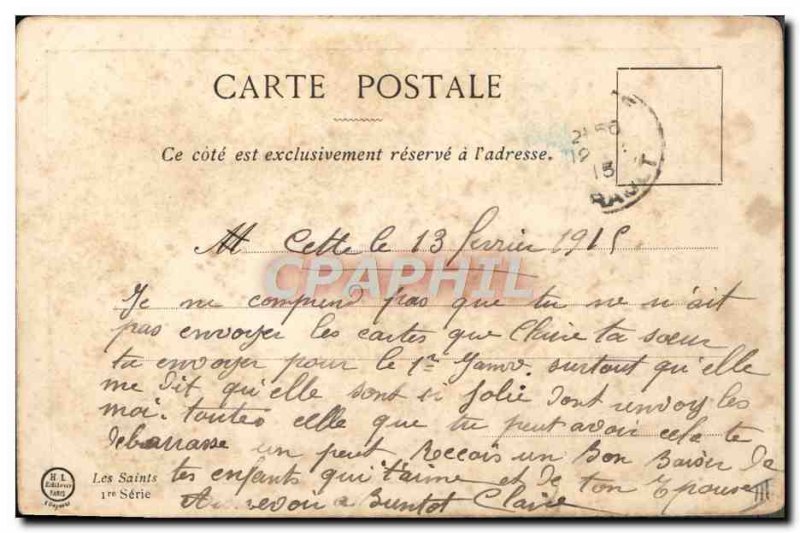 CARTE POSTALE
Ce côté est exclusivement réservé à l'adresse.
15
RAULT
Cette le 13 fevrier 1915
CPAPHIL
Je ne comprend pas que tu ne m'ait
pas envoyer les cartes que Claire ta sœur
ta envoyer pour le 1er Janv. surtout qu'elle
me dit qu'elle sont si Jolie Dont renvoy les
moi. toutes celle que tu peut avoir cela te
debarrasse un peut Recois un Bon Baiser de
tes enfants qui t'aime et de ton Epouse
Au revoir a Bientot Claire
H. L.
Editeur
PARIS
Les Saints
1re Série